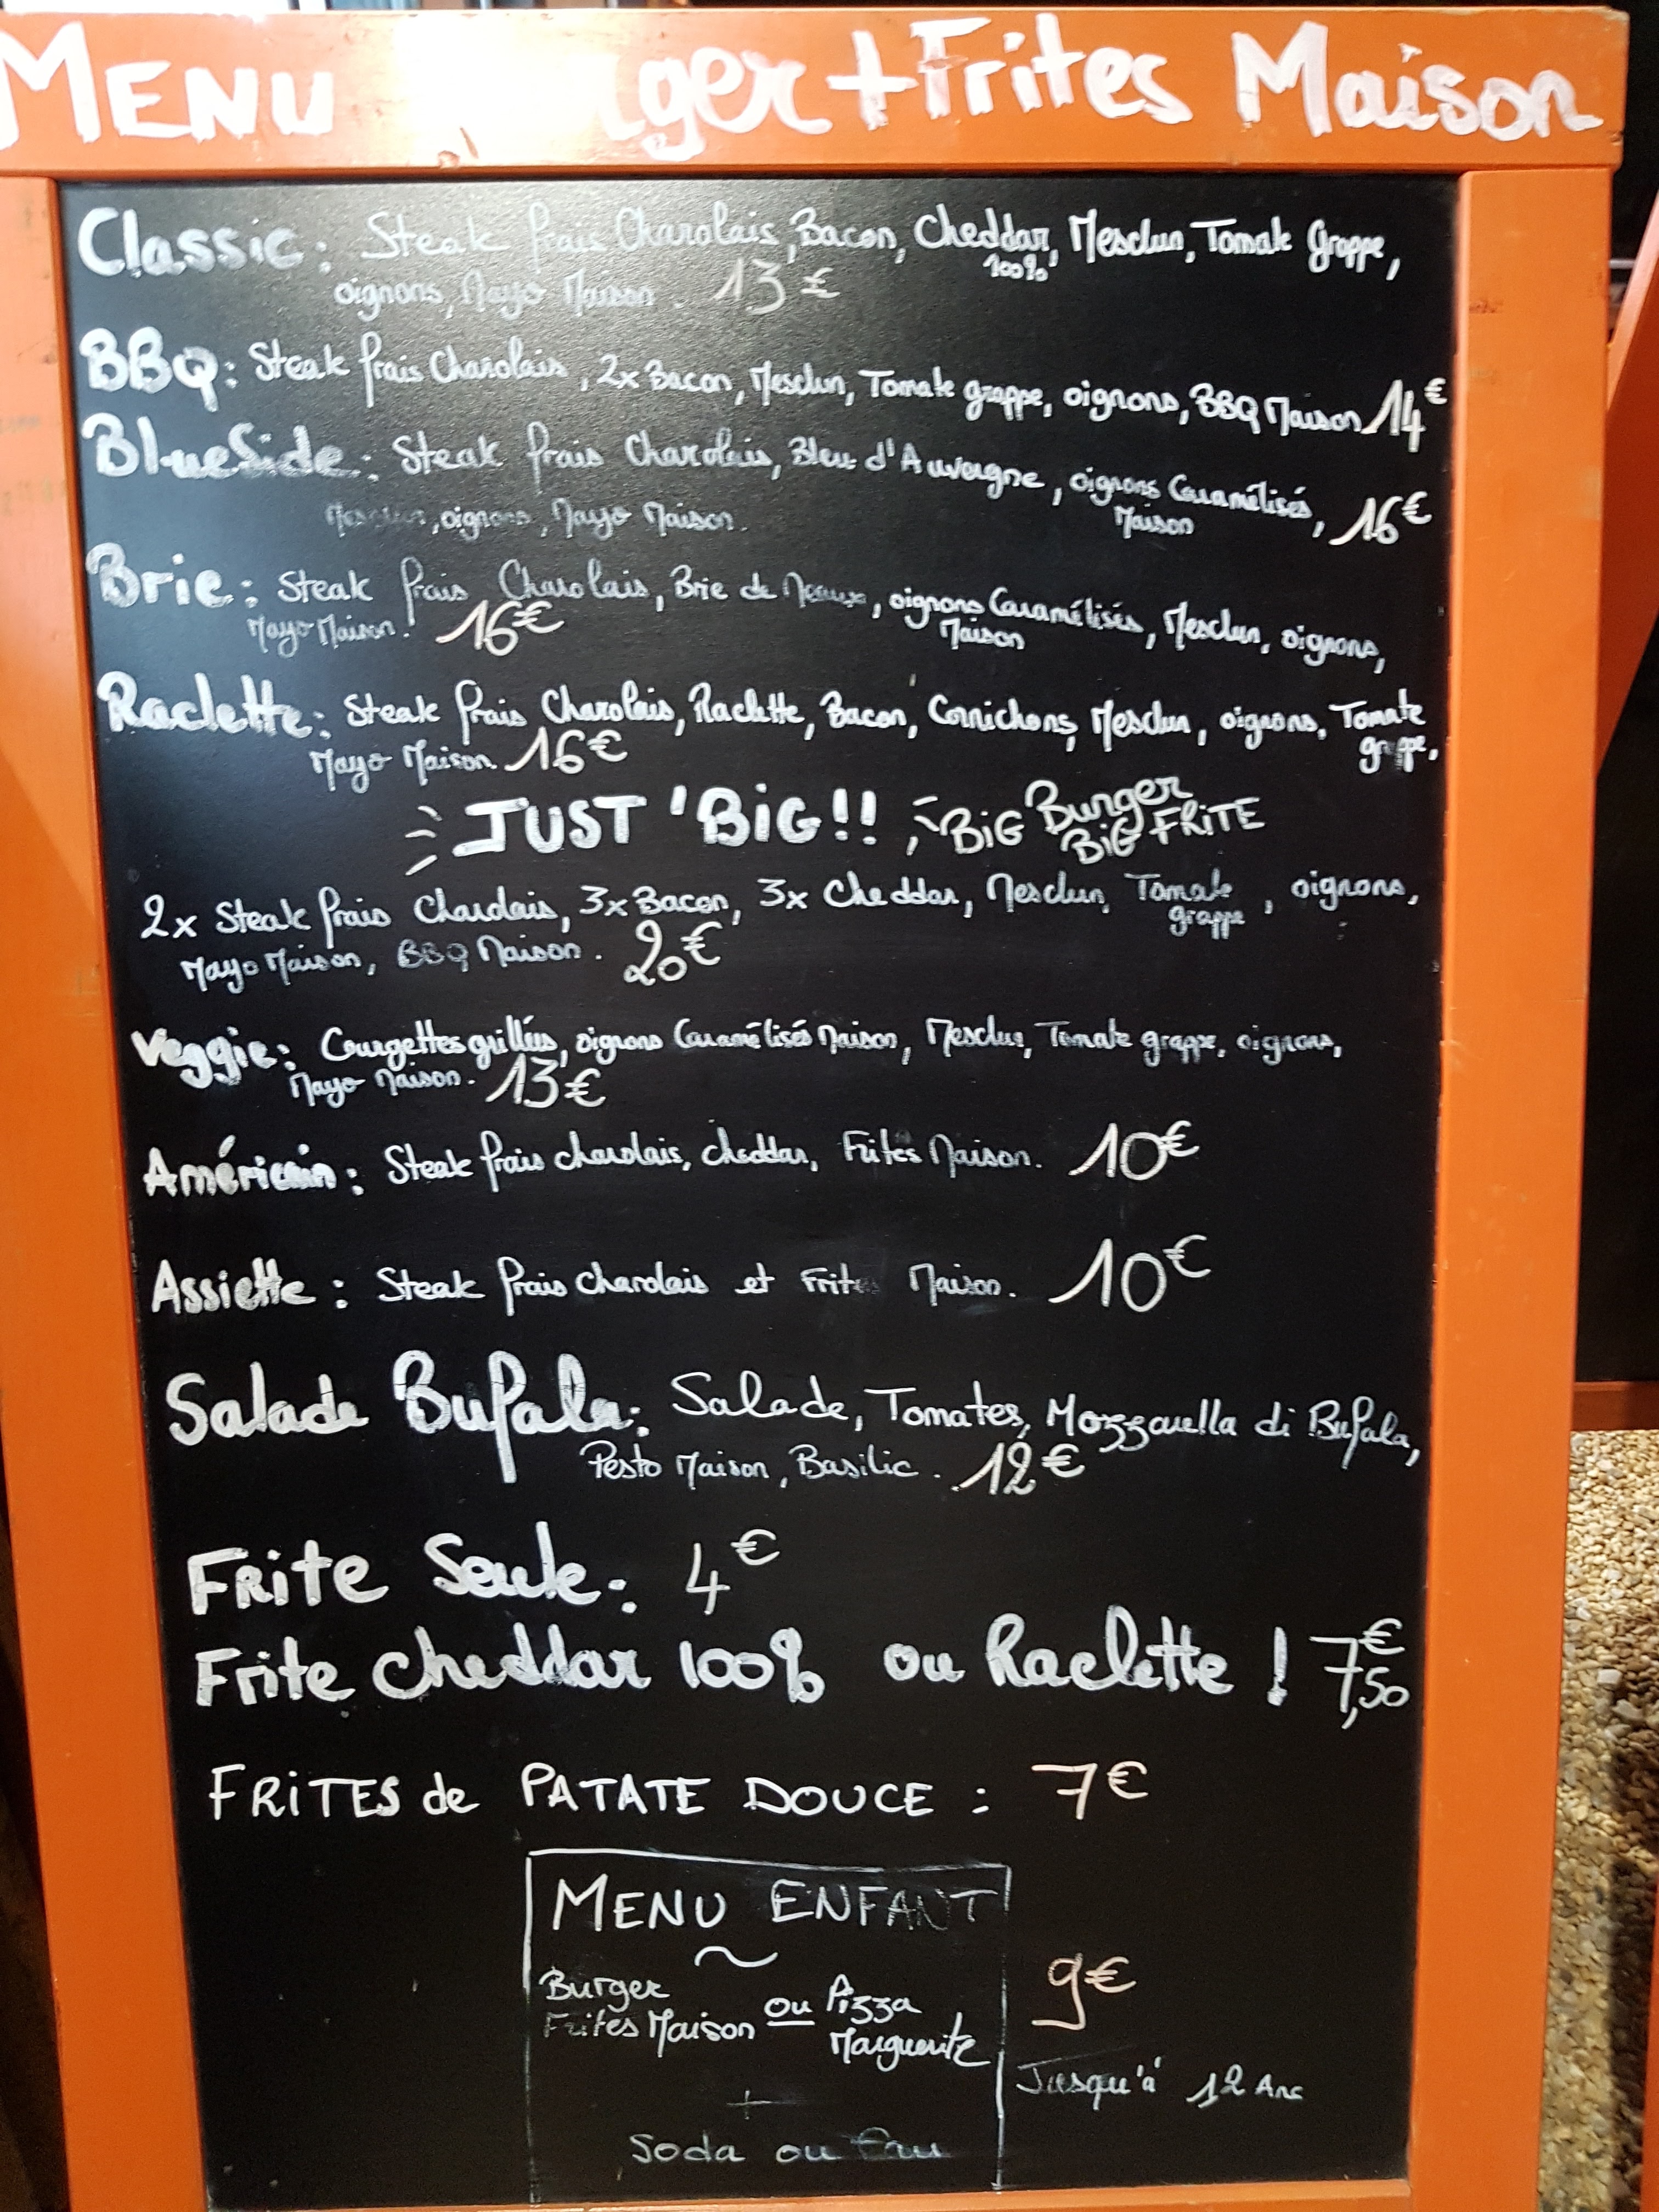 MENU ger + Frites Maison
Classic : Steak frais Charolais, Bacon, Cheddar, Mesclun, Tomate Grappe,
100%
oignons, Mayo Maison. 13€
BBQ : Steak frais Charolais, 2x Bacon, Mesclun, Tomate grappe, oignons, BBQ Maison 14€
BlueSide : Steak frais Charolais, Bleu d'Auvergne, oignons Caramélisés, 16€
Maison
Mesclun, oignons, Mayo Maison.
Brie : Steak frais Charolais, Brie de Meaux, oignons Caramélisés, Mesclun, oignons,
Maison
Mayo Maison. 16€
Raclette : Steak frais Charolais, Raclette, Bacon, Cornichons, Mesclun, oignons, Tomate
grappe,
Mayo Maison 16€
JUST 'BiG!! BiG Burger
BiG FRiTE
2x Steak frais Charolais, 3x Bacon, 3x Cheddar, Mesclun, Tomate, oignons,
grappe
Mayo Maison, BBQ Maison. 20€
Veggie : Courgettes grillées, oignons Caramélisés Maison, Mesclun, Tomate grappe, oignons,
Mayo Maison. 13€
Américain : Steak frais charolais, cheddar, Frites Maison. 10€
Assiette : Steak frais charolais et Frites Maison. 10€
Salade Bufala : Salade, Tomates, Mozzarella di Bufala,
Pesto Maison, Basilic. 12€
FRite Seule : 4€
Frite cheddar 100% ou Raclette ! 7,50€
FRiTES de PATATE DOUCE : 7€
MENU ENFANT
Burger
Frites Maison ou Pizza
Marguerite
9€
Jusqu'à 12 Ans
+
Soda ou Eau